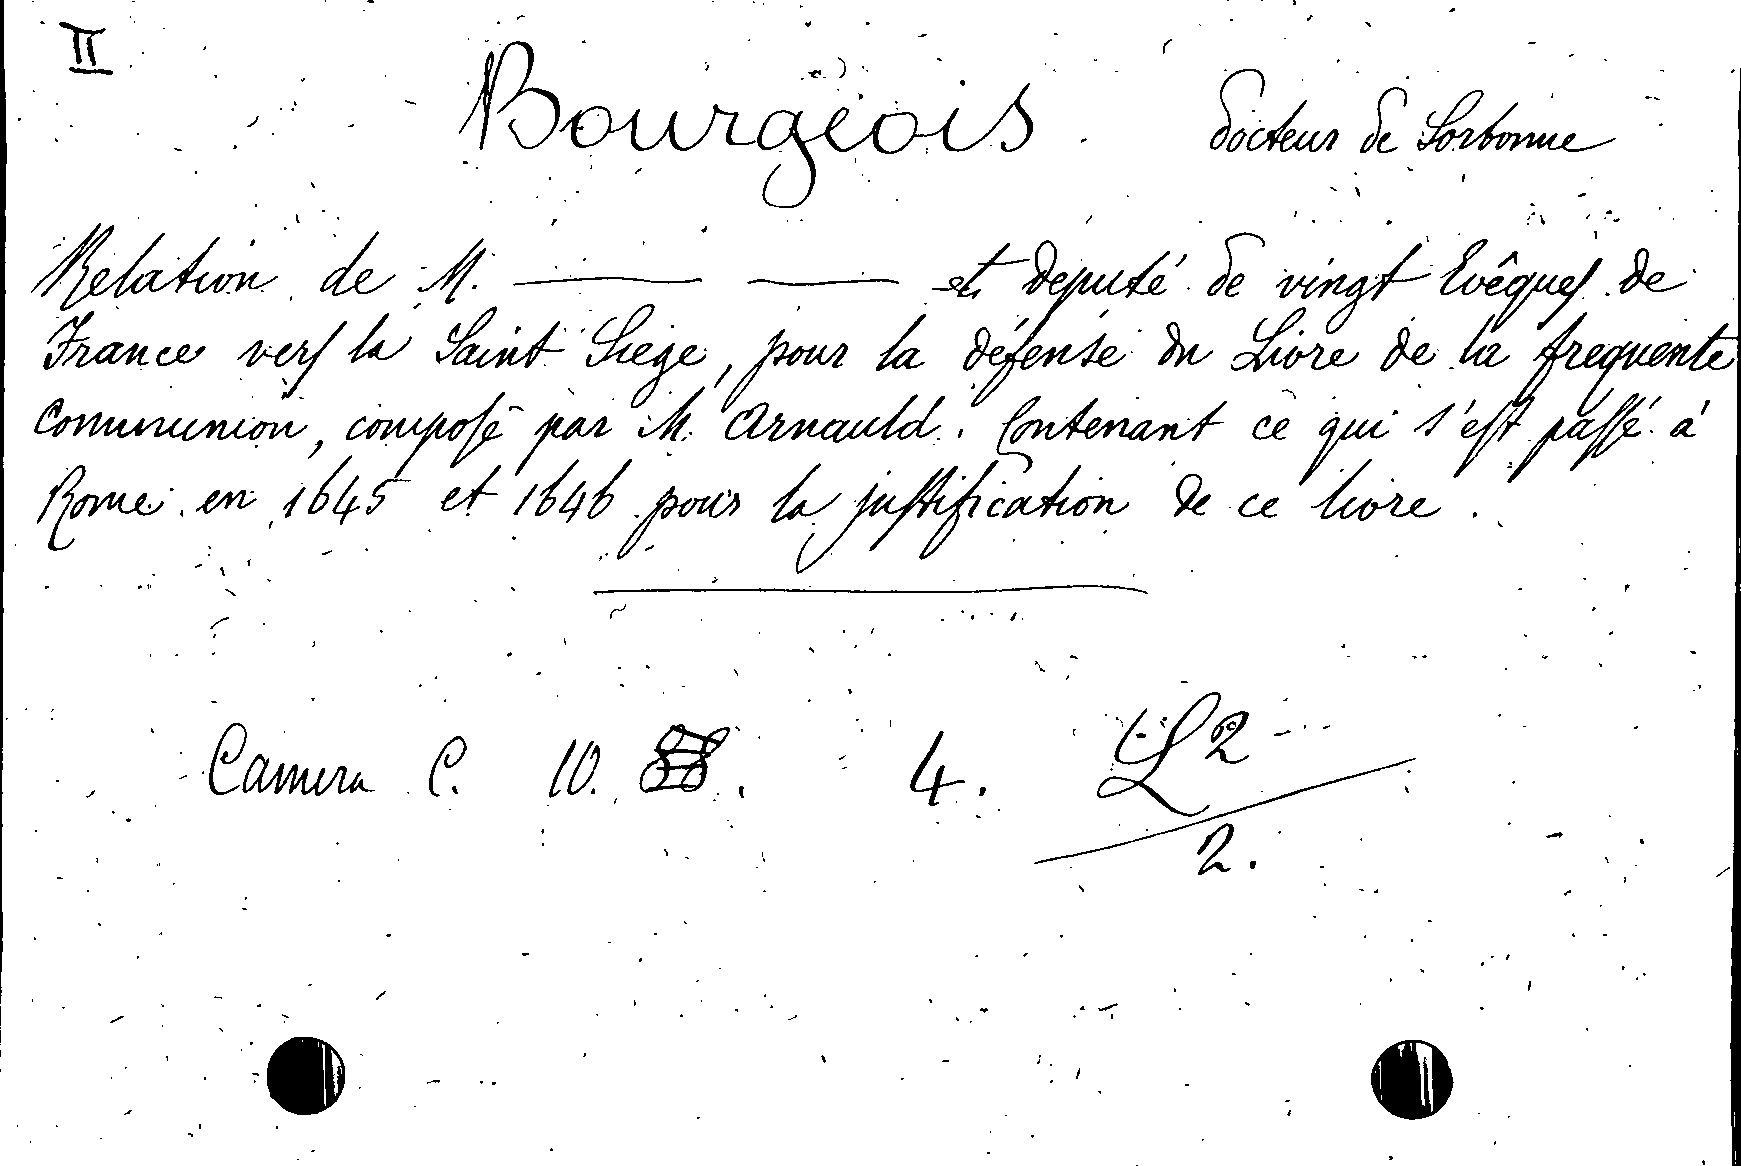 II
Bourgeois docteur de Sorbonne
Relation de M. ——— ——— et deputé de vingt Evêques de
France vers la Saint Siege, pour la défense du Livre de la frequente
Communion, composé par M. Arnauld. Contenant ce qui s'est passé à
Rome en 1645 et 1646 pour la justification de ce livre.
Camera C. 10. 4. L 2
2.